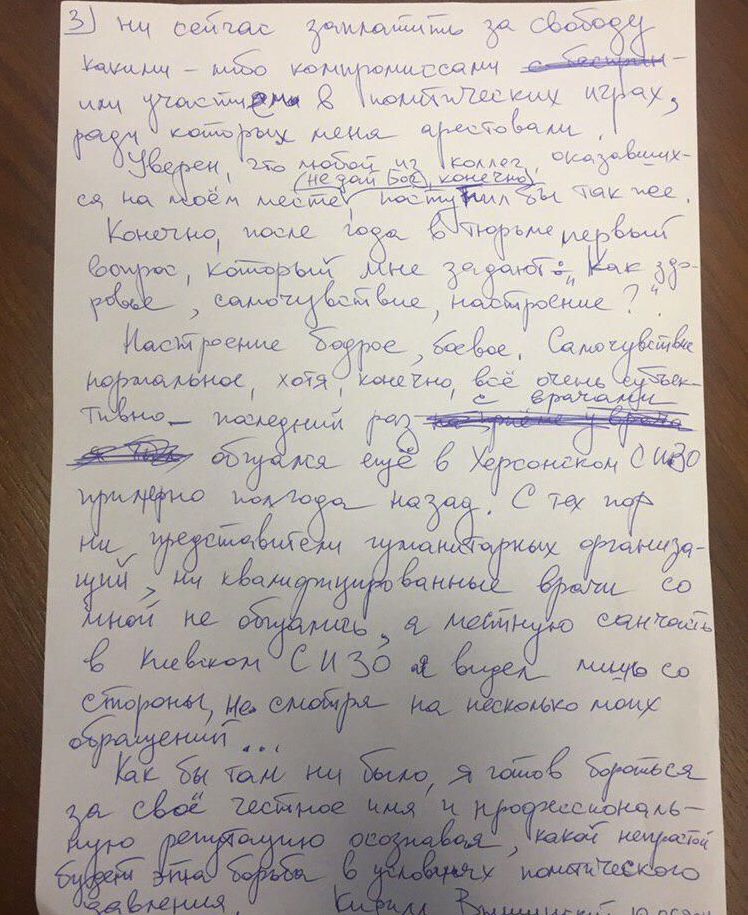 3) ни сейчас заплатить за свободу
какими-либо компромиссами
или участием в политических играх,
ради которых меня арестовали.
Уверен, что любой из коллег, оказавших-
(не дай Бог, конечно)
ся на моём месте, поступил бы так же.
Конечно, после года в тюрьме первый
вопрос, который мне задают: „Как здо-
ровье, самочувствие, настроение?"
Настроение бодрое, боевое. Самочувствие
нормальное, хотя, конечно, всё очень субъек-
с врачами
тивно – последний раз
общался ещё в Херсонском СИЗО
примерно полгода назад. С тех пор
ни представители гуманитарных организа-
ций, ни квалифицированные врачи со
мной не общались, а местную санчасть
в Киевском СИЗО я видел лишь со
стороны, не смотря на несколько моих
обращений...
Как бы там ни было, я готов бороться
за своё честное имя и профессиональ-
ную репутацию осознавая, какой непростой
будет эта борьба в условиях политического
давления. Кирилл Вышинский